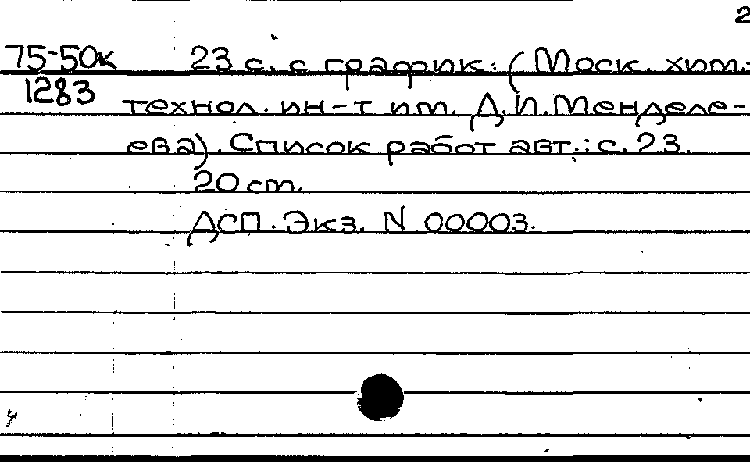 2
75-50к 23 с. с график. (Моск. хим.-
1283 технол. ин-т им. Д.И.Менделе-
ева). Список работ авт.: с. 23.
20 см.
ДСП. Экз. N 00003.